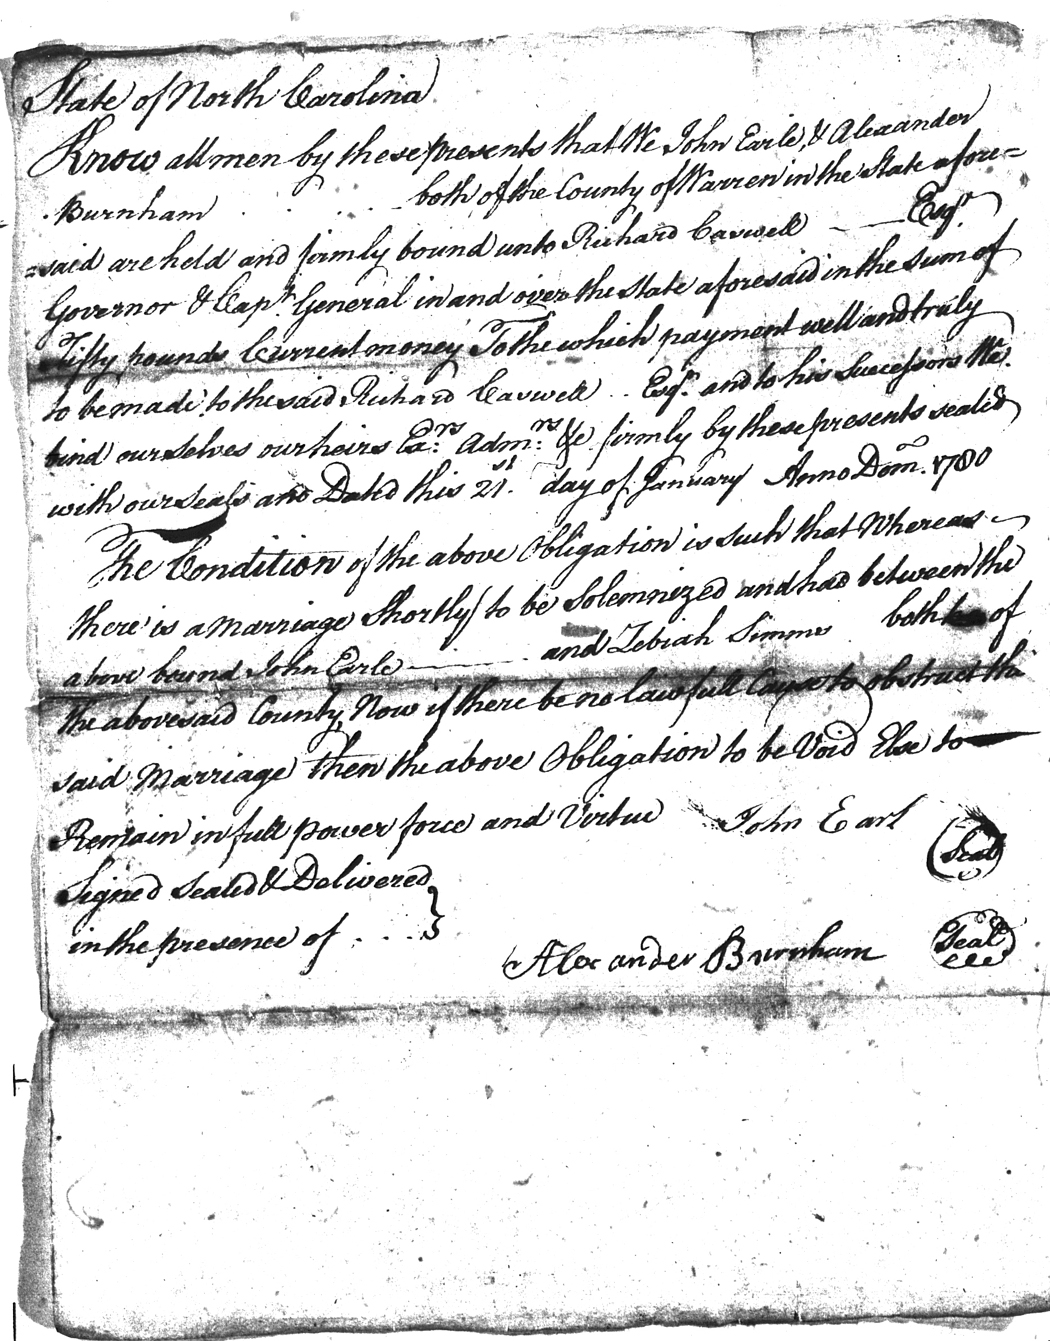 State of North Carolina
Know all men by these presents that We John Earle, & Alexander
Burnham . . . . both of the County of Warren in the State afore=
=said are held and firmly bound unto Richard Caswell —— Esqr.
Governor & Capt. General in and over the State aforesaid in the sum of
Fifty pounds Current money To the which payment well and truly
to be made to the said Richard Caswell .. Esqr. and to his Successors We
bind ourselves our heirs Exrs. Admrs. &c firmly by these presents sealed
with our seals and Dated this 21st. day of January Anno Dom. 1780
The Condition of the above Obligation is such that Whereas
there is a Marriage Shortly to be Solemnized and had between the
above bound John Earle —— and Zebiah Simms both of
the abovesaid County, Now if there be no lawfull Cause to obstruct the
said Marriage then the above Obligation to be Void Else to
Remain in full power force and Virtue John Earl (Seal)
Signed Sealed & Delivered
in the presence of . . . . } Alexander Burnham (Seal)